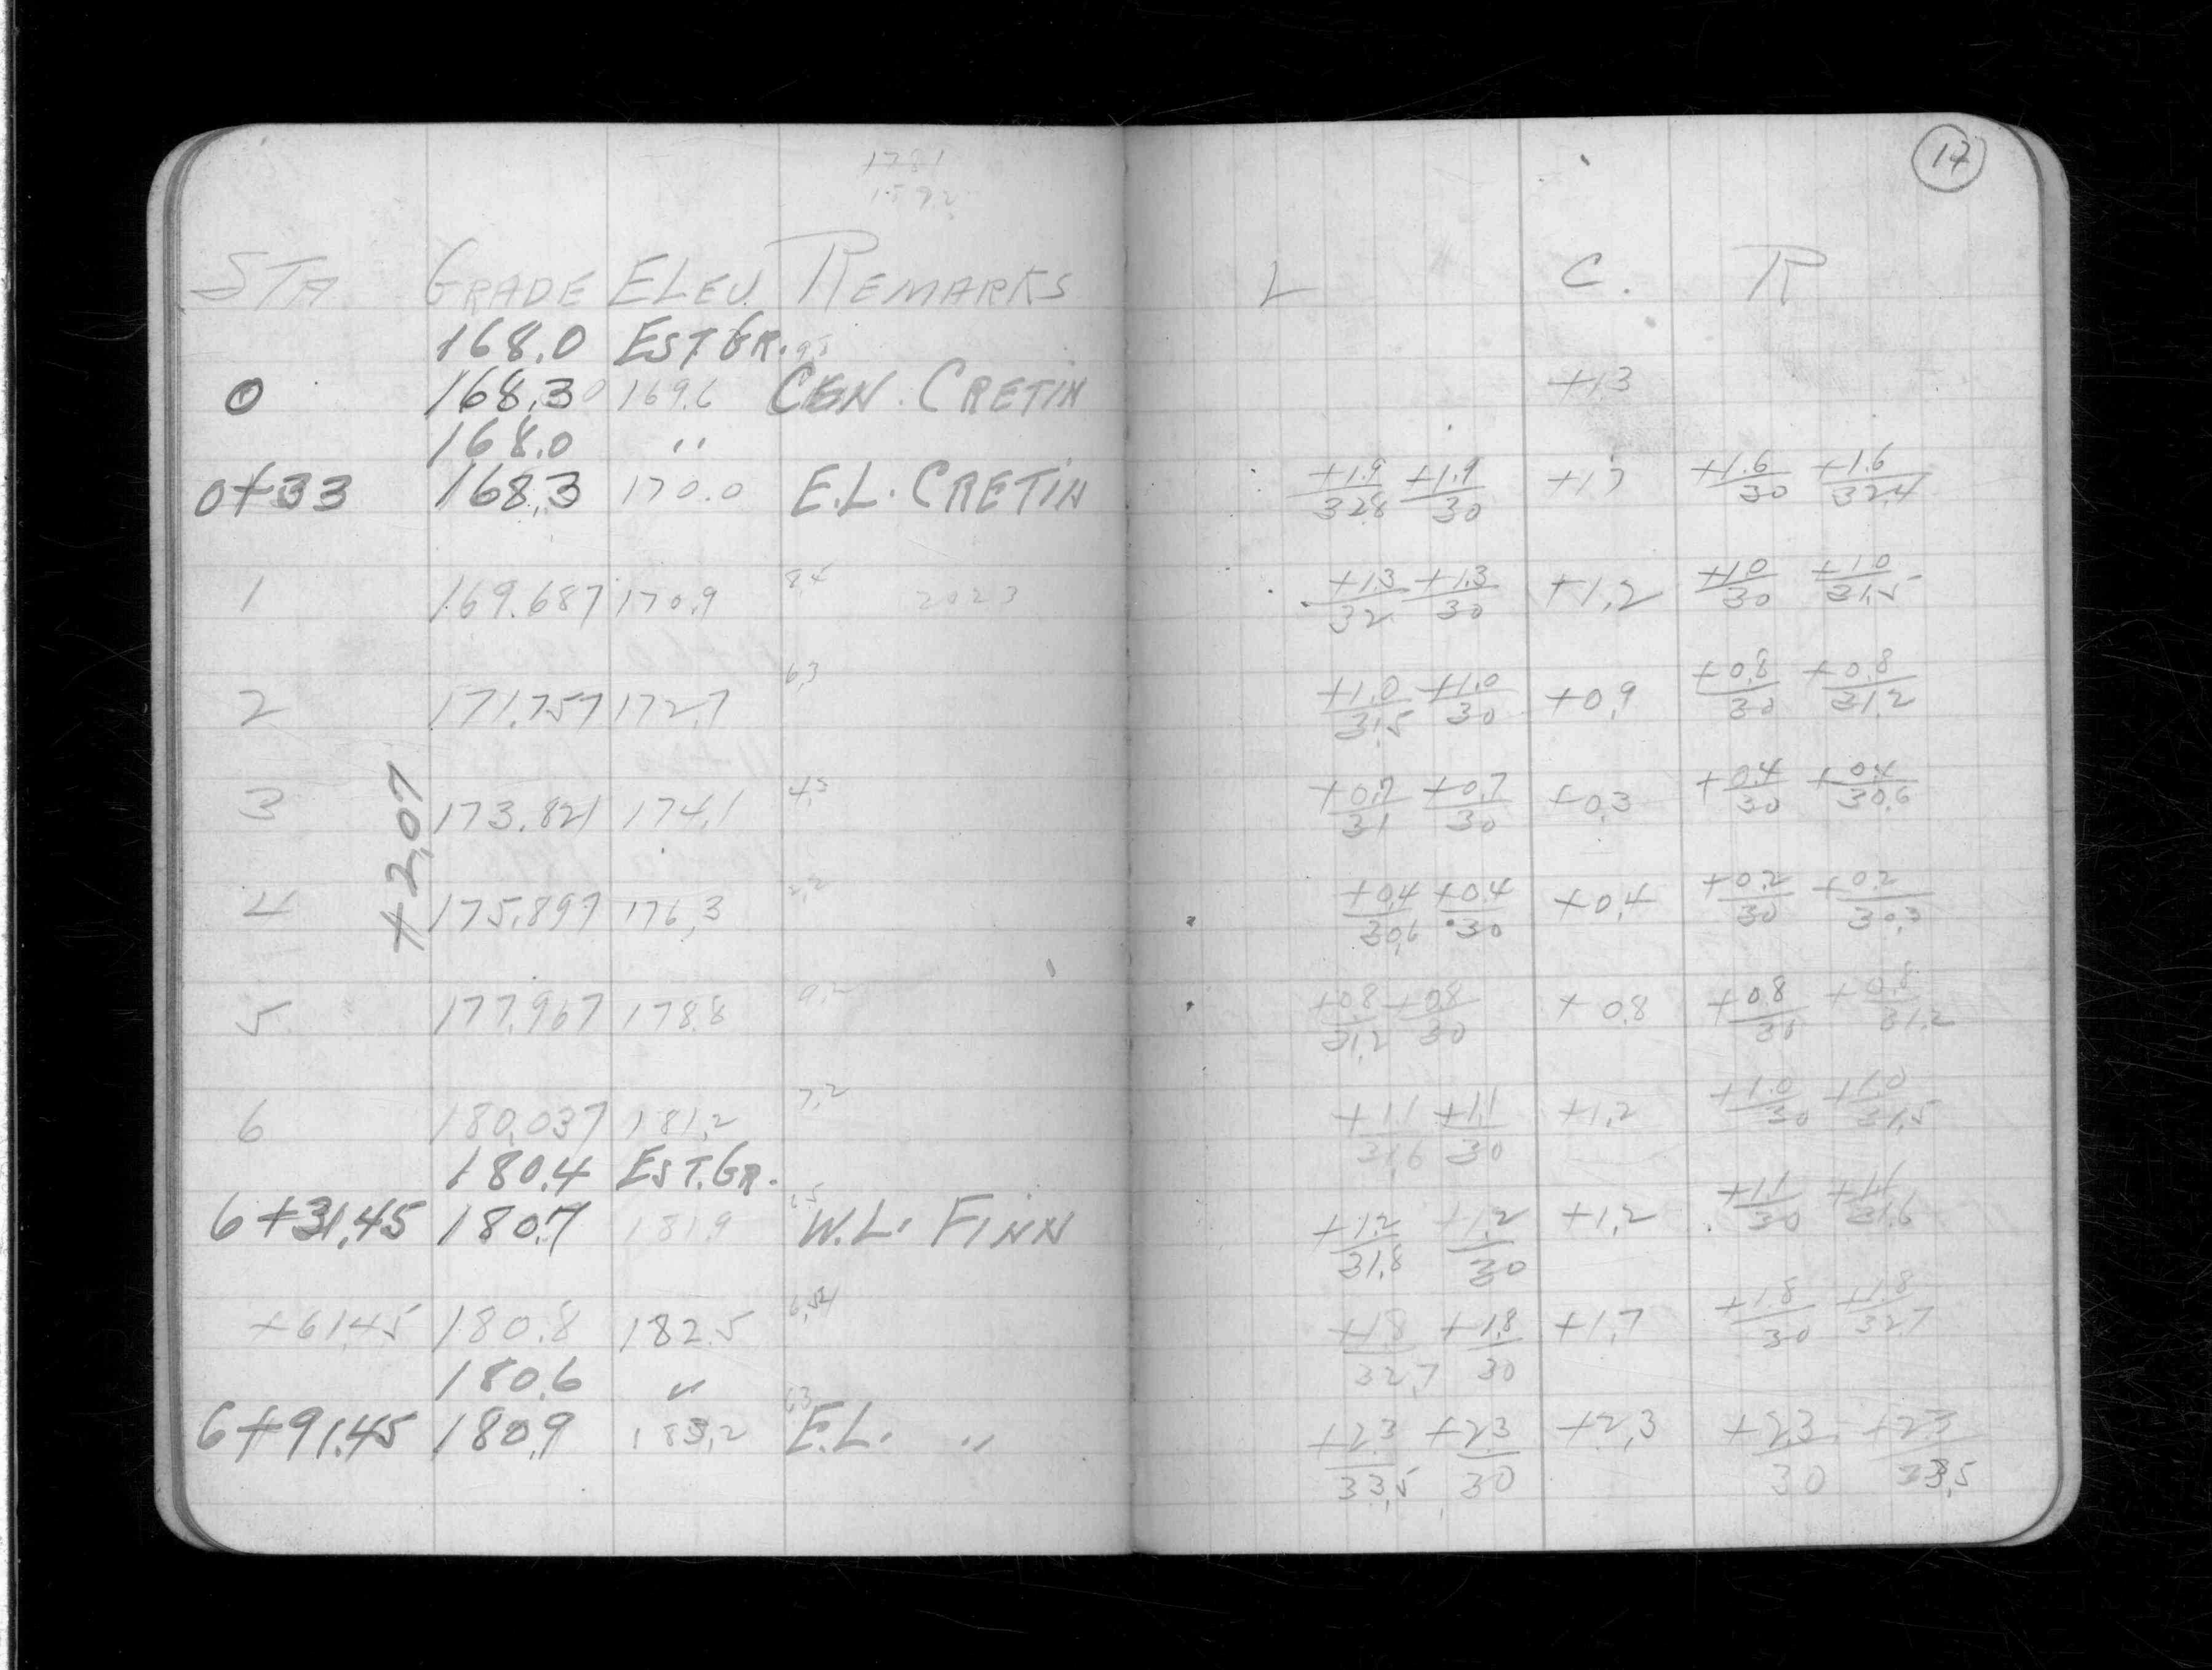 17
1781
1592
STA GRADE ELEV REMARKS L C. R
168.0 EST. GR.
0 168.3 169.6 CEN. CRETIN +1.3
168.0 "
0+33 168.3 170.0 E.L. CRETIN +1.9/32.8 +1.9/30 +1.7 +1.6/30 +1.6/32.4
1 169.687 170.9 8.4 2023 +1.3/32 +1.3/30 +1.2 +1.0/30 +1.0/31.5
2 171.757 172.7 6.3 +1.0/31.5 +1.0/30 +0.9 +0.8/30 +0.8/31.2
3 173.821 174.1 +0.7/31 +0.7/30 +0.3 +0.4/30 +0.4/30.6
+2.07
4 175.897 176.3 2.2 +0.4/30.6 +0.4/30 +0.4 +0.2/30 +0.2/30.3
5 177.967 178.8 +0.8/31.2 +0.8/30 +0.8 +0.8/30 +0.8/31.2
6 180.037 181.2 7.2 +1.1/31.6 +1.1/30 +1.2 +1.0/30 +1.0/31.5
180.4 EST. GR.
6+31.45 180.7 181.9 W.L. FINN +1.2/31.8 +1.2/30 +1.2 +1.1/30 +1.1/31.6
+61.45 180.8 182.5 +1.8/32.7 +1.8/30 +1.7 +1.8/30 +1.8/32.7
180.6 "
6+91.45 180.9 183.2 E.L. " +2.3/33.5 +2.3/30 +2.3 +2.3/30 +2.3/33.5